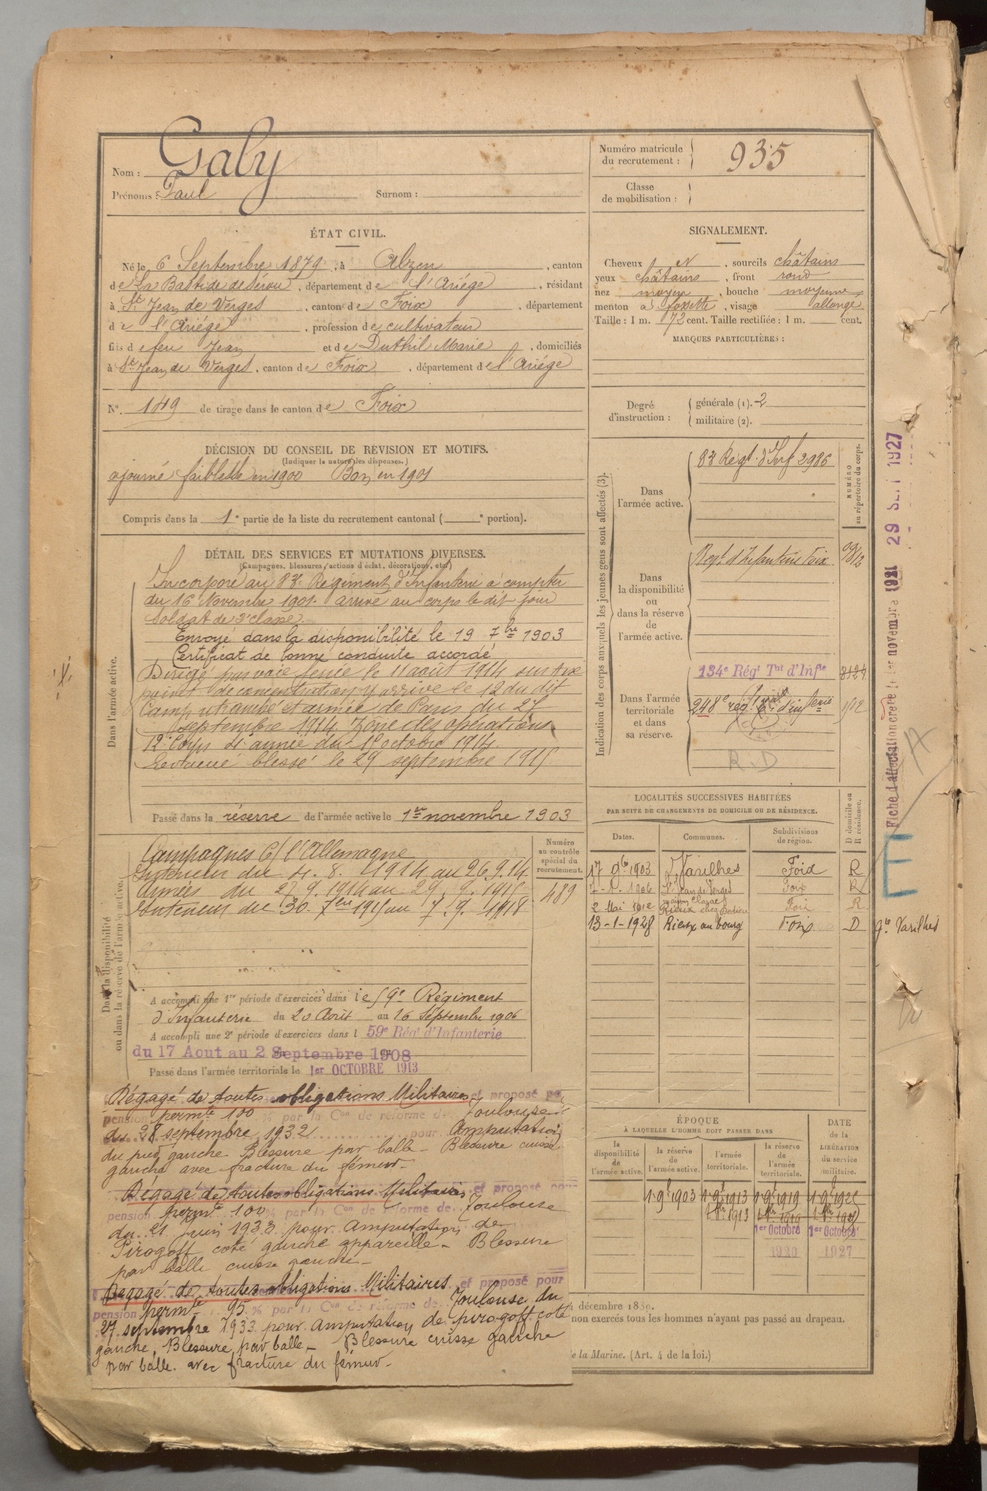 Nom : Galy
Prénoms : Paul Surnom :
Numéro matricule du recrutement : 935
Classe de mobilisation :
ÉTAT CIVIL.
Né le 6 Septembre 1879, à Alzen, canton
de La Bastide de Sérou, département de l'Ariège, résidant
à St Jean de Verges, canton de Foix, département
de l'Ariège, profession de cultivateur
fils de feu Jean et de Duthil Marie, domiciliés
à St Jean de Verges, canton de Foix, département de l'Ariège
N° 149 de tirage dans le canton de Foix
SIGNALEMENT.
Cheveux et, sourcils châtains
yeux châtains, front rond
nez moyen, bouche moyenne
menton à fossette, visage allongé
Taille : 1 m. 72 cent. Taille rectifiée : 1 m. cent.
MARQUES PARTICULIÈRES :
Degré d'instruction : générale (1). 2
militaire (2).
DÉCISION DU CONSEIL DE REVISION ET MOTIFS.
(Indiquer la nature des dispenses.)
ajourné faiblesse en 1900 Bon en 1901
Compris dans la 1e partie de la liste du recrutement cantonal ( portion).
DÉTAIL DES SERVICES ET MUTATIONS DIVERSES.
(Campagnes, blessures, actions d'éclat, décorations, etc.)
Dans l'armée active.
Incorporé au 83e Régiment d'Infanterie à compter
du 16 Novembre 1901 arrivé au corps le dit jour
Soldat de 2e classe
Envoyé dans la disponibilité le 19 7bre 1903
Certificat de bonne conduite accordé
Dirigé par voie ferrée le 11 août 1914 sur
point de concentration y arrivé le 12 du dit
Camp retranché et armée de Paris du 27
septembre 1914 Zone des opérations
12e Corps 4e armée du 1er octobre 1914
Evacué blessé le 29 septembre 1915
Passé dans la réserve de l'armée active le 1er novembre 1903
Indication des corps auxquels les jeunes gens sont affectés (3).
NUMÉRO au répertoire du corps.
Dans l'armée active.
83 Régt d'Inf 2986
Dans la disponibilité ou dans la réserve de l'armée active.
Régt d'Infanterie Foix
Dans l'armée territoriale et dans sa réserve.
134e Régt Tal d'Infie
248e rég d'infanterie
R.D
Dans la disponibilité ou dans la réserve de l'armée active.
Campagnes C/ l'Allemagne
Intérieur du 4.8.1914 au 26.9.14
Armées du 27.9.1914 au 29.9.1915
Intérieur du 30 7bre 1915 au 7.9.1918
Numéro au contrôle spécial du recrutement.
489
A accompli une 1re période d'exercices dans le 59e Régiment
d'Infanterie du 20 Août au 16 Septembre 1906
A accompli une 2e période d'exercices dans l 59e Régt d'Infanterie
du 17 Aout au 2 Septembre 1908
Passé dans l'armée territoriale le 1er OCTOBRE 1913
LOCALITÉS SUCCESSIVES HABITÉES
PAR SUITE DE CHANGEMENTS DE DOMICILE OU DE RÉSIDENCE.
Dates. Communes. Subdivisions de région. D domicile ou R résidence.
17 9bre 1903 Varilhes Foix R
1906 St Jean de Verges Foix R
2 Mai 1912 Rieux Foix R
13-1-1928 Rieux au bourg Foix D
Varilhes
ÉPOQUE
À LAQUELLE L'HOMME DOIT PASSER DANS
DATE de la LIBÉRATION du service militaire.
la disponibilité de l'armée active. la réserve de l'armée active. l'armée territoriale. la réserve de l'armée territoriale.
1 9bre 1903 1 9bre 1913 1 9bre 1919
1er Octobre 1920 1er Octobre 1927
Dégagé de toutes obligations Militaires et proposé
pension permte 100 % par la Con de réforme de Toulouse
du 28 septembre 1932 pour Amputation
du pied gauche. Blessure par balle - Blessure cuisse
gauche avec fracture du fémur.
Dégagé de toutes obligations Militaires et proposé pour
pension permte 100 % par la Con de réforme de Toulouse
du 21 Juin 1933 pour amputation de
Pirogoff coté gauche appareillé - Blessure
par balle cuisse gauche
Dégagé de toutes obligations Militaires et proposé pour
pension permte 95 % par la Con de réforme de Toulouse du
27 septembre 1933 pour amputation de pirogoff coté
gauche. Blessure par balle - Blessure cuisse gauche
par balle avec fracture du fémur.
non exercés tous les hommes n'ayant pas passé au drapeau.
de la Marine. (Art. 4 de la loi.)